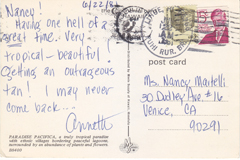 6/22/82
Nancy!
Having one hell of a
great time. Very
tropical - beautiful!
Getting an outrageous
tan! I may never
come back...
Annette
PARADISE PACIFICA, a truly tropical paradise
with ethnic villages bordering peaceful lagoons,
surrounded by an abundance of plants and flowers
post card
Ms. Nancy Martelli
30 Dudley Ave #16
Venice, CA
90291